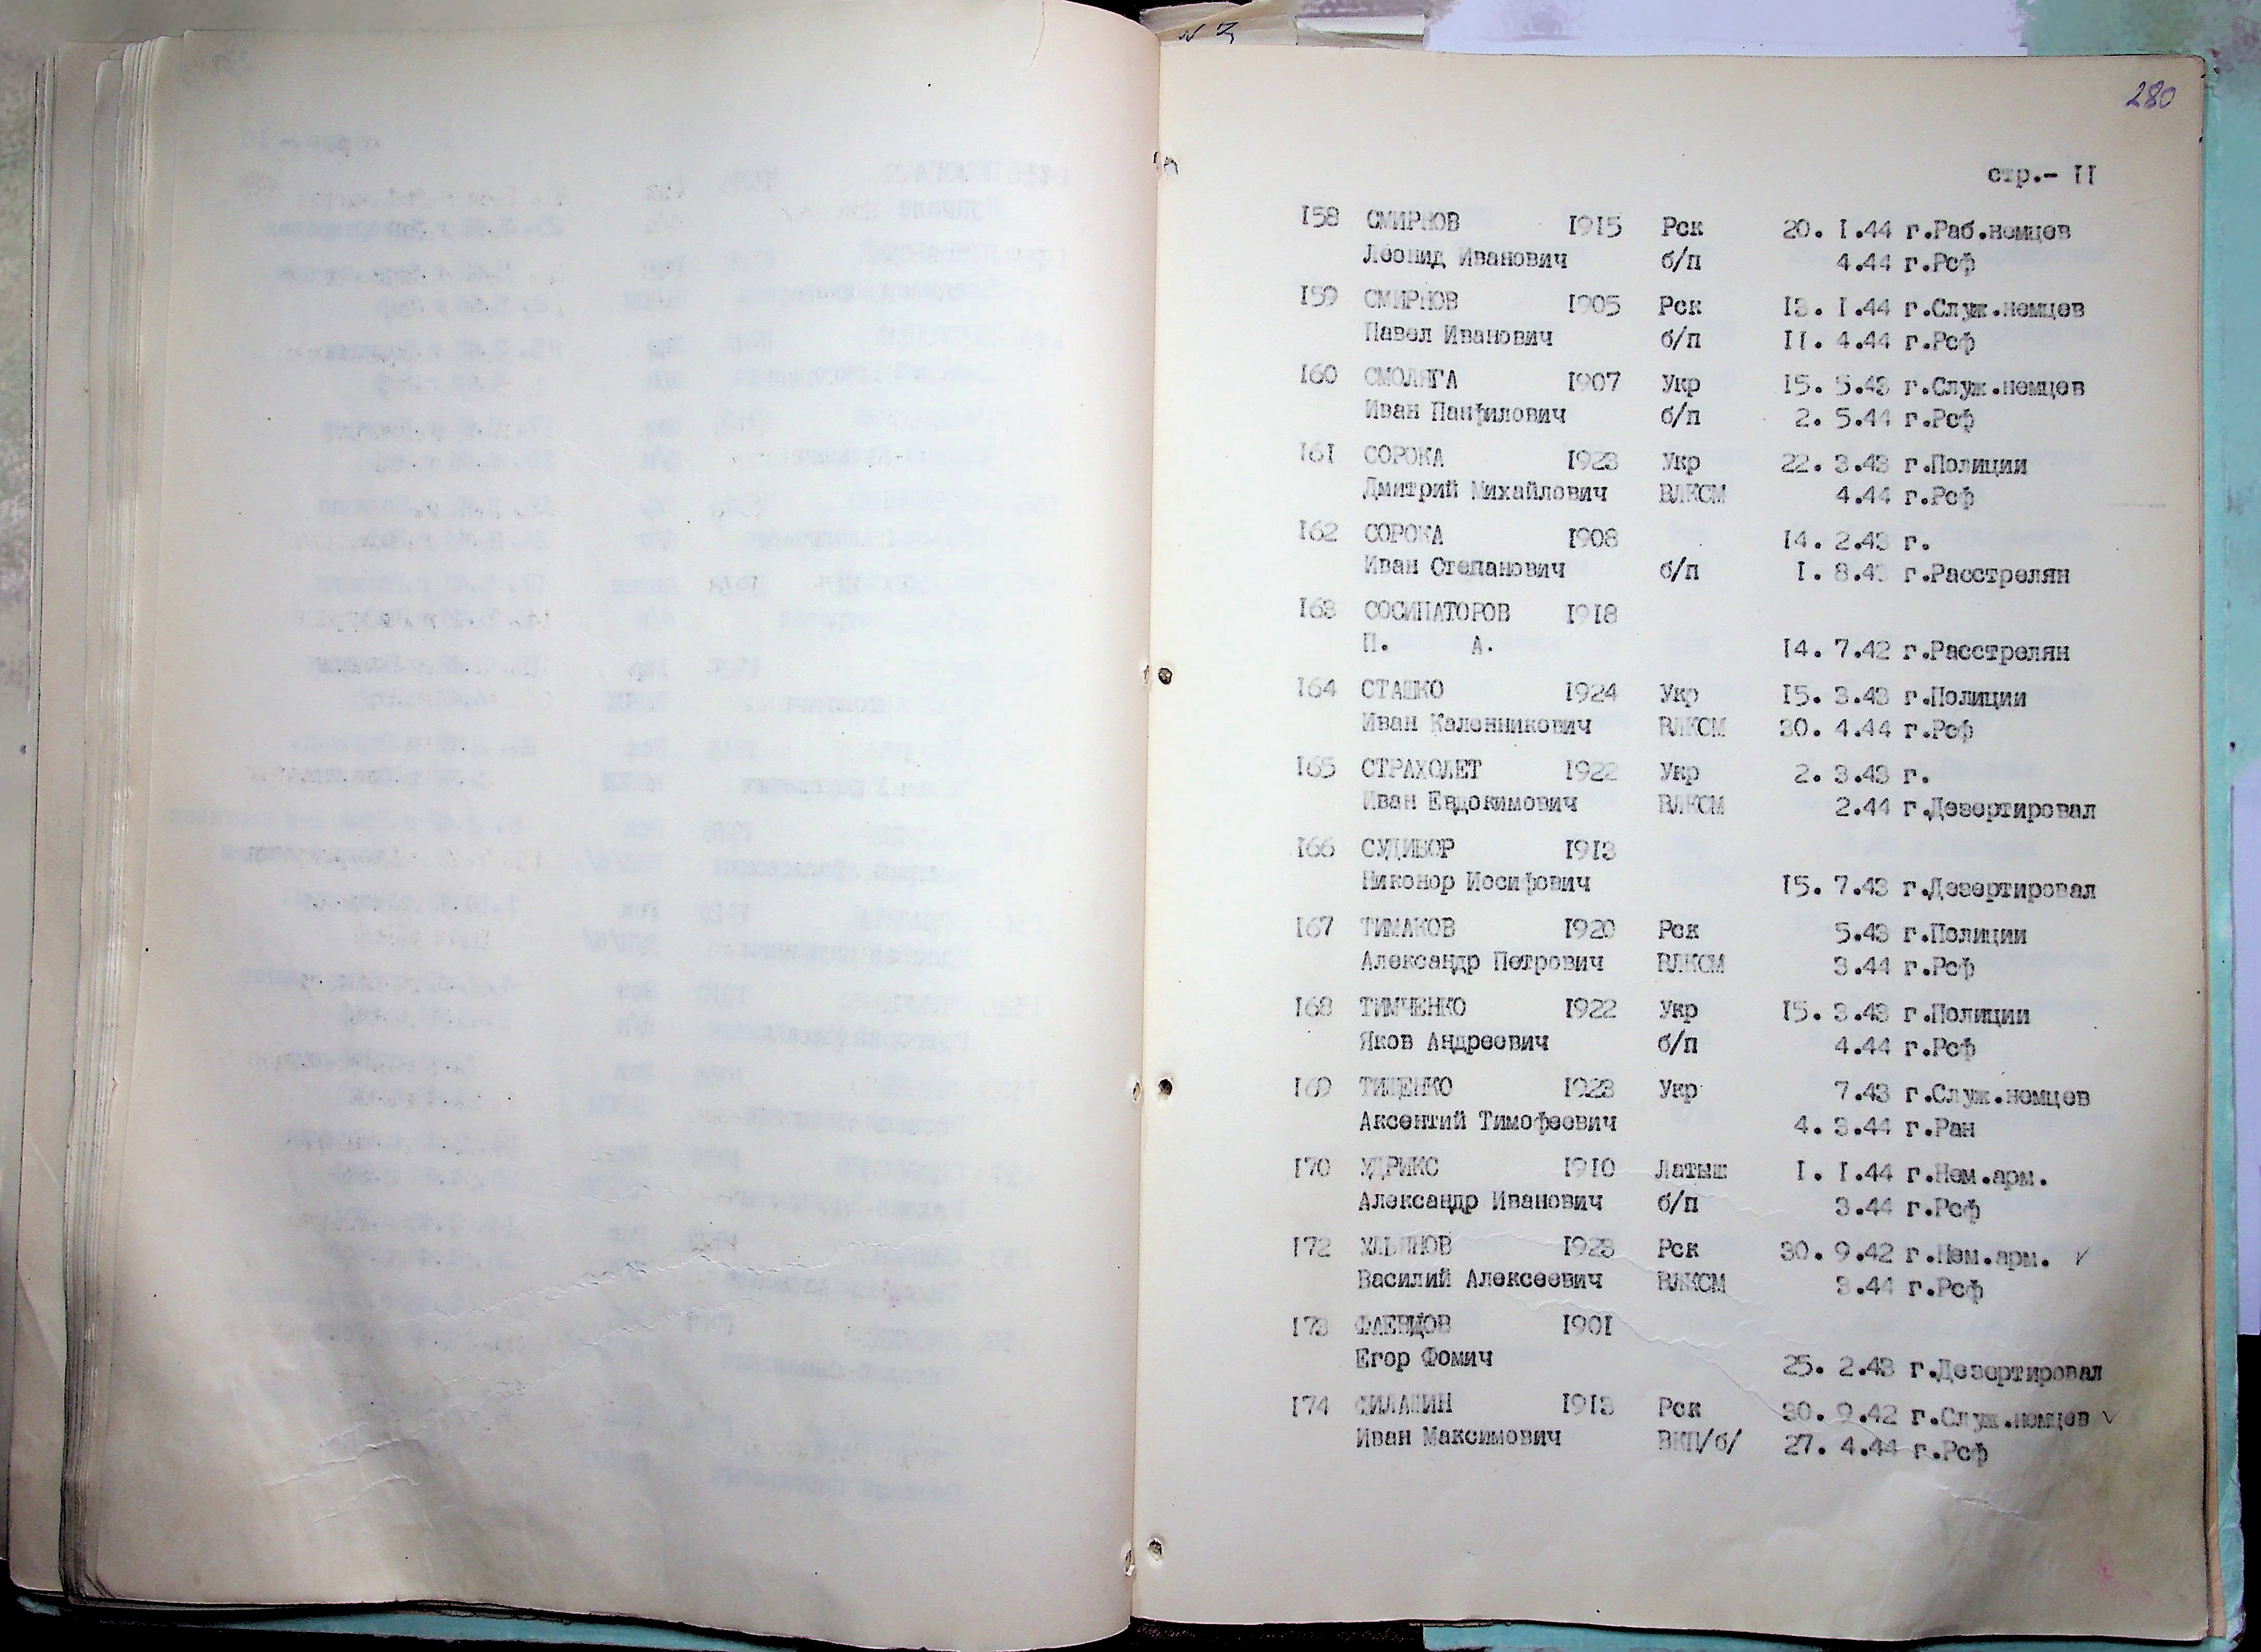 280
стр.- II
I58 СМИРНОВ I9I5 Рск 20. I.44 г.Раб.немцев
Леонид Иванович б/п 4.44 г.Рсф
I59 СМИРНОВ I905 Рск I3. I.44 г.Служ.немцев
Павел Иванович б/п II. 4.44 г.Рсф
I60 СМОЛЯГА I907 Укр I5. 5.43 г.Служ.немцев
Иван Панфилович б/п 2. 5.44 г.Рсф
I6I СОРОКА I923 Укр 22. 3.43 г.Полиции
Дмитрий Михайлович ВЛКСМ 4.44 г.Рсф
I62 СОРОКА I908 I4. 2.43 г.
Иван Степанович б/п I. 8.43 г.Расстрелян
I63 СОСИПАТОРОВ I9I8
П. А. I4. 7.42 г.Расстрелян
I64 СТАШКО I924 Укр I5. 3.43 г.Полиции
Иван Каленникович ВЛКСМ 30. 4.44 г.Рсф
I65 СТРАХОЛЕТ I922 Укр 2. 3.43 г.
Иван Евдокимович ВЛКСМ 2.44 г.Дезертировал
I66 СУДИБОР I9I3
Никонор Иосифович I5. 7.43 г.Дезертировал
I67 ТИМАКОВ I920 Рск 5.43 г.Полиции
Александр Петрович ВЛКСМ 3.44 г.Рсф
I68 ТИМЧЕНКО I922 Укр I5. 3.43 г.Полиции
Яков Андреевич б/п 4.44 г.Рсф
I69 ТИЩЕНКО I923 Укр 7.43 г.Служ.немцев
Аксентий Тимофеевич 4. 3.44 г.Ран
I70 УДРИКС I9I0 Латыш I. I.44 г.Нем.арм.
Александр Иванович б/п 3.44 г.Рсф
I72 УЛЬЯНОВ I923 Рск 30. 9.42 г.Нем.арм. ✓
Василий Алексеевич ВЛКСМ 3.44 г.Рсф
I73 I90I
Егор Фомич 25. 2.43 г.Дезертировал
I74 I9I3 Рск 30. 9.42 г.Служ.немцев ✓
Иван Максимович ВКП/б/ 27. 4.44 г.Рсф